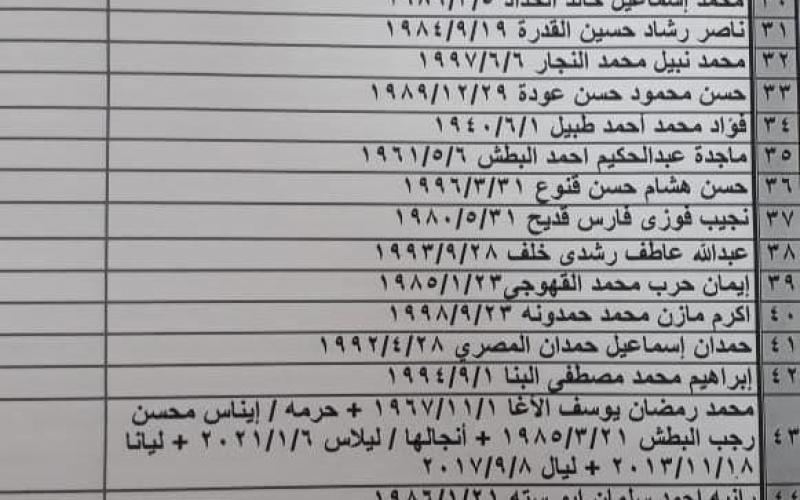 ٣٠ محمد إسماعيل خالد الحداد
٣١ ناصر رشاد حسين القدرة ١٩٨٤/٩/١٩
٣٢ محمد نبيل محمد النجار ١٩٩٧/٦/٦
٣٣ حسن محمود حسن عودة ١٩٨٩/١٢/٢٩
٣٤ فؤاد محمد أحمد طبيل ١٩٤٠/٦/١
٣٥ ماجدة عبدالحكيم احمد البطش ١٩٦١/٥/٦
٣٦ حسن هشام حسن قنوع ١٩٩٦/٣/٣١
٣٧ نجيب فوزى فارس قديح ١٩٨٠/٥/٣١
٣٨ عبدالله عاطف رشدى خلف ١٩٩٣/٩/٢٨
٣٩ إيمان حرب محمد القهوجي ١٩٨٥/١/٢٣
٤٠ اكرم مازن محمد حمدونه ١٩٩٨/٩/٢٣
٤١ حمدان إسماعيل حمدان المصري ١٩٩٢/٤/٢٨
٤٢ إبراهيم محمد مصطفى البنا ١٩٩٤/٩/١
محمد رمضان يوسف الأغا ١٩٦٧/١١/١ + حرمه / إيناس محسن
٤٣ رجب البطش ١٩٨٥/٣/٢١ + أنجالها / ليلاس ٢٠٢١/١/٦ + ليانا
٢٠١٣/١١/١٨ + ليال ٢٠١٧/٩/٨
٤٤ رانيه احمد سلمان ابو سته ١٩٨٦/١/٢١